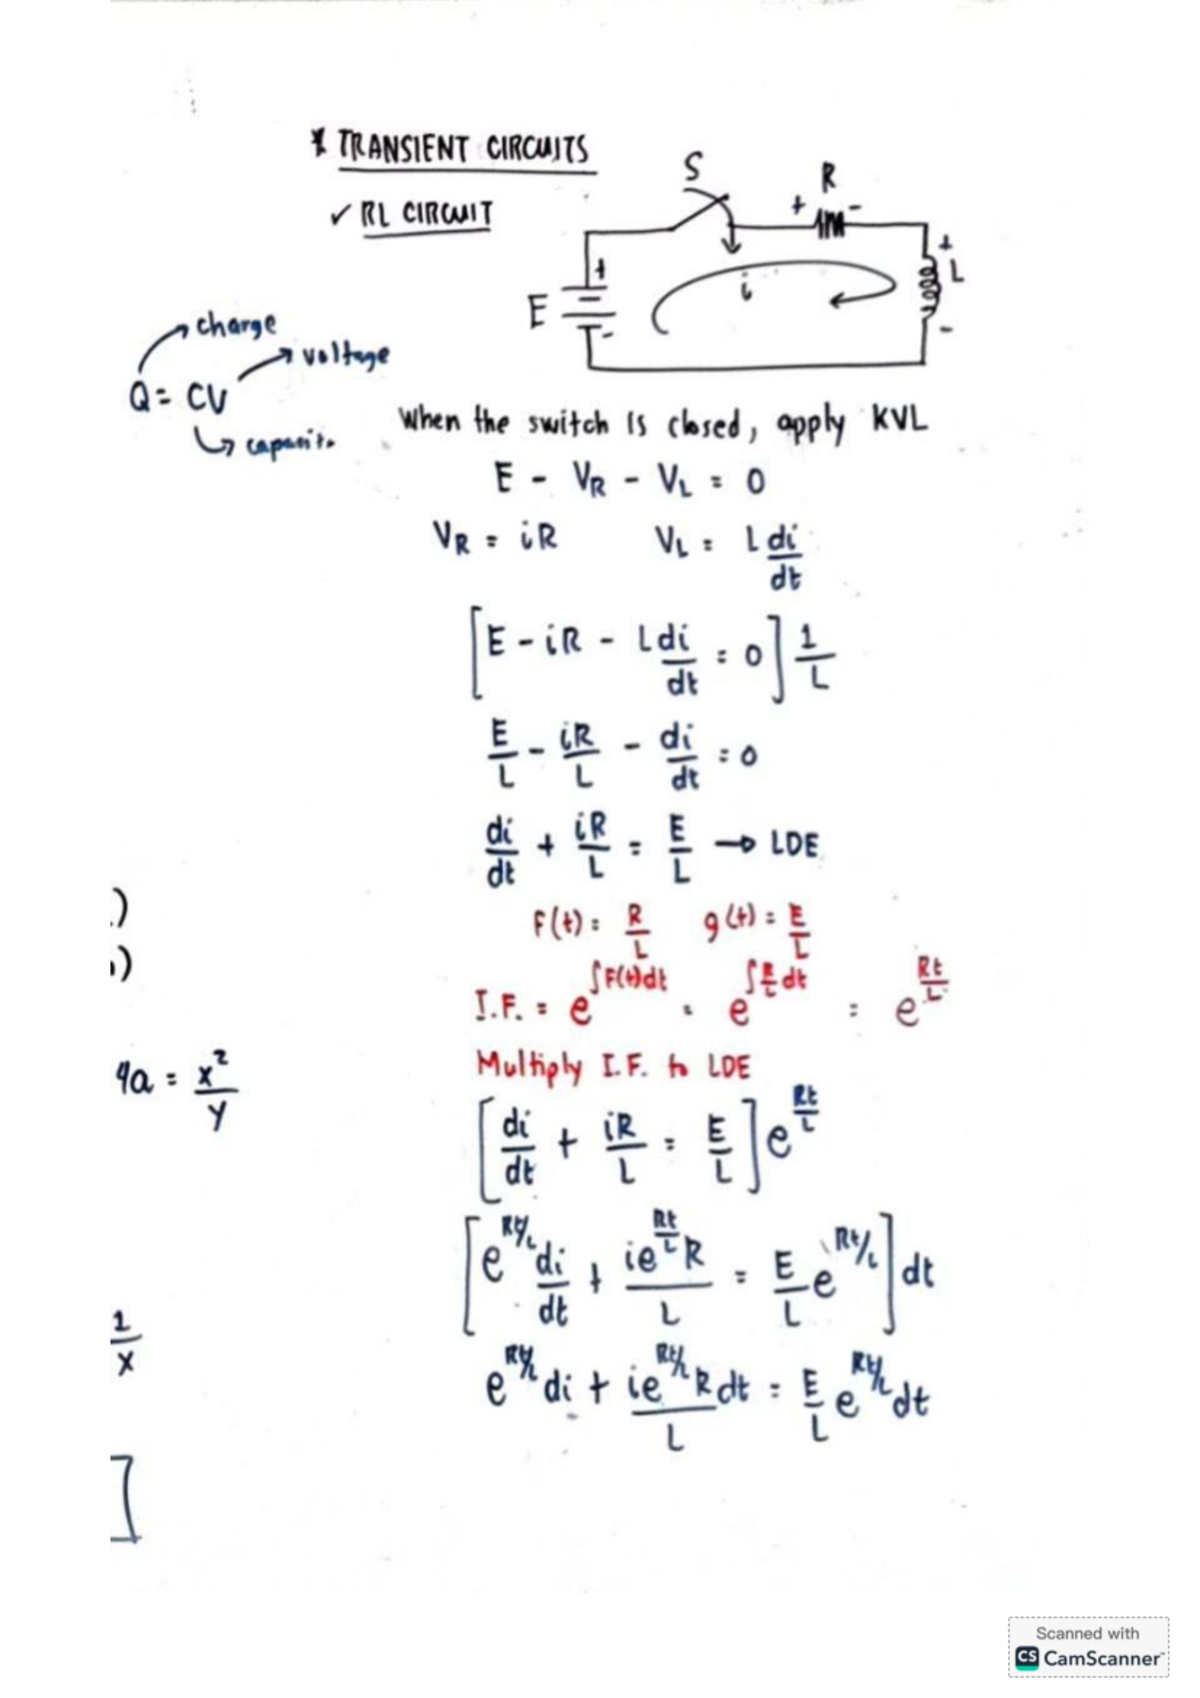 * TRANSIENT CIRCUITS
✓ RL CIRCUIT
S
R
+ -
+
L
-
i
+
E
-
charge
voltage
Q = CV
When the switch is closed, apply KVL
E - VR - VL = 0
VR = iR VL = L di/dt
[E - iR - L di/dt = 0] 1/L
E/L - iR/L - di/dt = 0
di/dt + iR/L = E/L → LDE
)
F(t) = R/L g(t) = E/L
)
I.F. = e^∫F(t)dt = e^∫R/L dt = e^Rt/L
Multiply I.F. to LDE
4a = x²/y
[di/dt + iR/L = E/L] e^Rt/L
[e^Rt/L di/dt + ie^Rt/L R/L = E/L e^Rt/L] dt
1/x
e^Rt/L di + ie^Rt/L R/L dt = E/L e^Rt/L dt
]
Scanned with
CS CamScanner